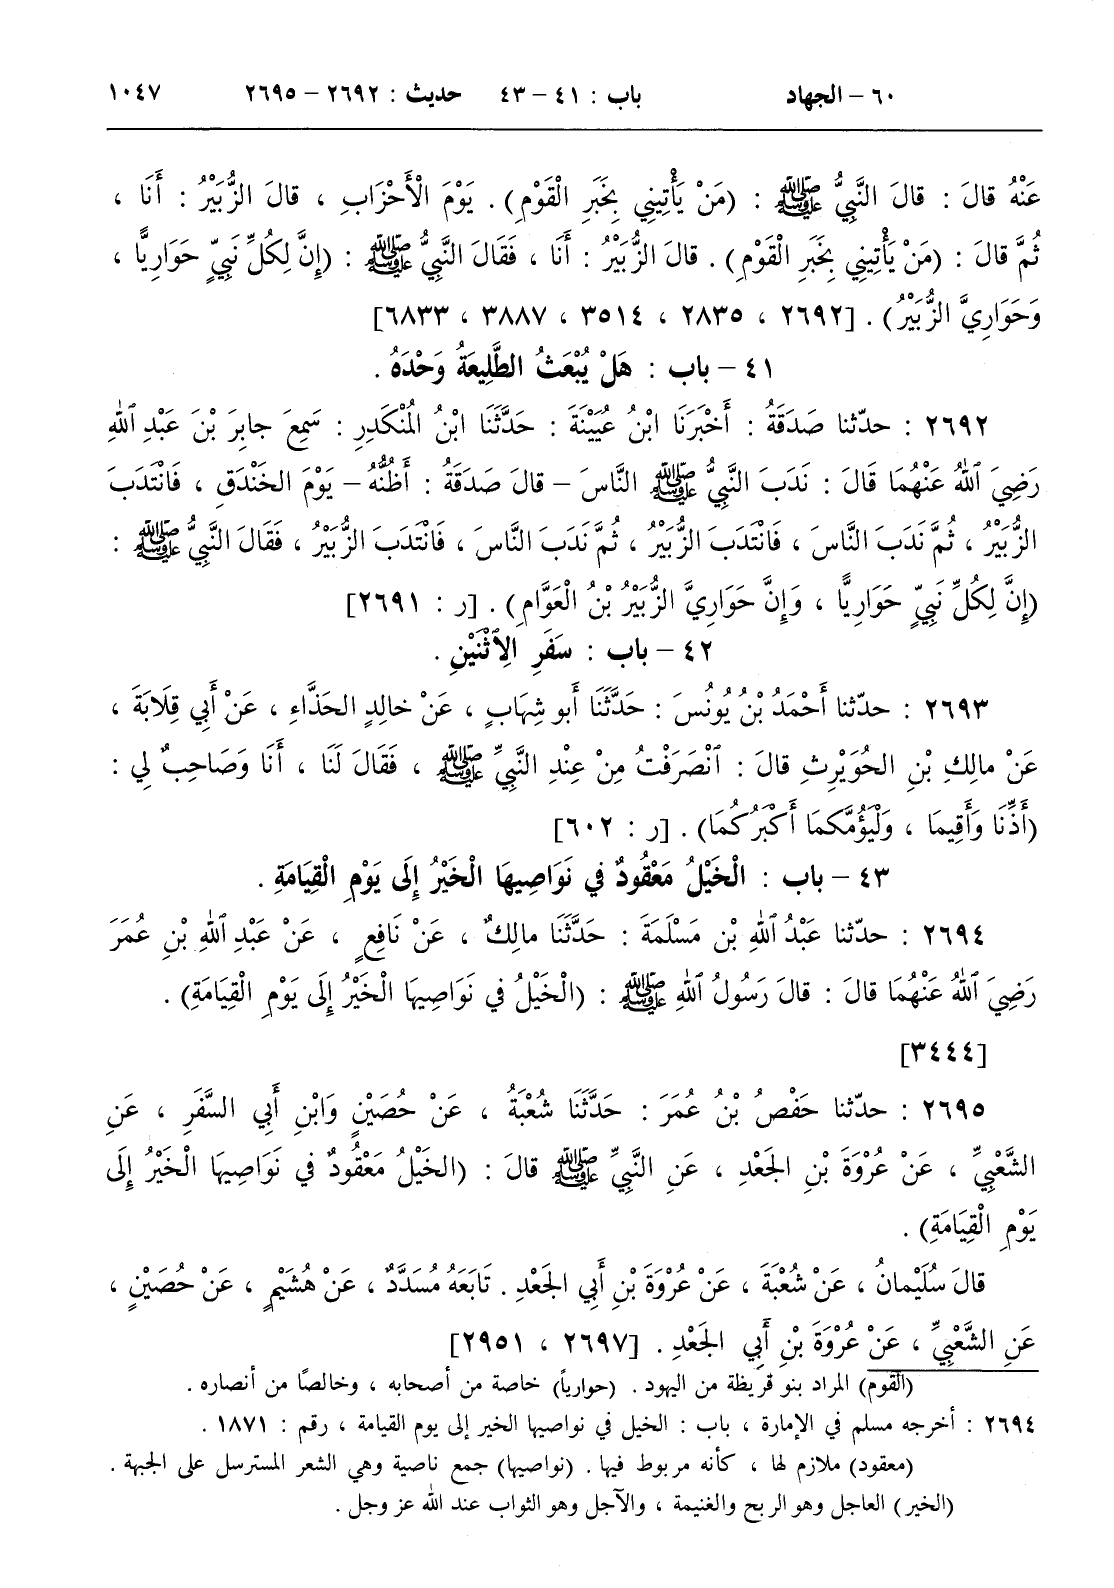 ٦٠ – الجهاد باب : ٤١ – ٤٣ حديث : ٢٦٩٢ – ٢٦٩٥ ١٠٤٧
عَنْهُ قالَ : قالَ النَّبِيُّ ﷺ : (مَنْ يَأْتِينِي بِخَبَرِ الْقَوْمِ) . يَوْمَ الْأَحْزَابِ ، قالَ الزُّبَيْرُ : أَنَا ،
ثُمَّ قالَ : (مَنْ يَأْتِينِي بِخَبَرِ الْقَوْمِ) . قالَ الزُّبَيْرُ : أَنَا ، فَقَالَ النَّبِيُّ ﷺ : (إِنَّ لِكُلِّ نَبِيٍّ حَوَارِيًّا ،
وَحَوَارِيَّ الزُّبَيْرُ) . [٢٦٩٢ ، ٢٨٣٥ ، ٣٥١٤ ، ٣٨٨٧ ، ٦٨٣٣]
٤١ – باب : هَلْ يُبْعَثُ الطَّلِيعَةُ وَحْدَهُ .
٢٦٩٢ : حدّثنا صَدَقَةُ : أَخْبَرَنَا ابْنُ عُيَيْنَةَ : حَدَّثَنَا ابْنُ الْمُنْكَدِرِ : سَمِعَ جابِرَ بْنَ عَبْدِ ٱللهِ
رَضِيَ ٱللهُ عَنْهُمَا قَالَ : نَدَبَ النَّبِيُّ ﷺ النَّاسَ – قالَ صَدَقَةُ : أَظُنُّهُ – يَوْمَ الخَنْدَقِ ، فَانْتَدَبَ
الزُّبَيْرُ ، ثُمَّ نَدَبَ النَّاسَ ، فَانْتَدَبَ الزُّبَيْرُ ، ثُمَّ نَدَبَ النَّاسَ ، فَانْتَدَبَ الزُّبَيْرُ ، فَقَالَ النَّبِيُّ ﷺ :
(إِنَّ لِكُلِّ نَبِيٍّ حَوَارِيًّا ، وَإِنَّ حَوَارِيَّ الزُّبَيْرُ بْنُ الْعَوَّامِ) . [ر : ٢٦٩١]
٤٢ – باب : سَفَرِ الِٱثْنَيْنِ .
٢٦٩٣ : حدّثنا أَحْمَدُ بْنُ يُونُسَ : حَدَّثَنَا أَبو شِهَابٍ ، عَنْ خالِدٍ الحَذَّاءِ ، عَنْ أَبِي قِلَابَةَ ،
عَنْ مالِكِ بْنِ الحُوَيْرِثِ قالَ : ٱنْصَرَفْتُ مِنْ عِنْدِ النَّبِيِّ ﷺ ، فَقَالَ لَنَا ، أَنَا وَصَاحِبٌ لِي :
(أَذِّنَا وَأَقِيمَا ، وَلْيَؤُمَّكمَا أَكْبَرُكُمَا) . [ر : ٦٠٢]
٤٣ – باب : الْخَيْلُ مَعْقُودٌ فِي نَوَاصِيهَا الْخَيْرُ إِلَى يَوْمِ الْقِيَامَةِ .
٢٦٩٤ : حدّثنا عَبْدُ ٱللهِ بْن مَسْلَمَةَ : حَدَّثَنَا مالِكٌ ، عَنْ نَافِعٍ ، عَنْ عَبْدِ ٱللهِ بْنِ عُمَرَ
رَضِيَ ٱللهُ عَنْهُمَا قالَ : قالَ رَسُولُ ٱللهِ ﷺ : (الْخَيْلُ فِي نَوَاصِيهَا الْخَيْرُ إِلَى يَوْمِ الْقِيَامَةِ) .
[٣٤٤٤]
٢٦٩٥ : حدّثنا حَفْصُ بْنُ عُمَرَ : حَدَّثَنَا شُعْبَةُ ، عَنْ حُصَيْنٍ وَابْنِ أَبِي السَّفَرِ ، عَنِ
الشَّعْبِيِّ ، عَنْ عُرْوَةَ بْنِ الجَعْدِ ، عَنِ النَّبِيِّ ﷺ قالَ : (الخَيْلُ مَعْقُودٌ فِي نَوَاصِيهَا الْخَيْرُ إِلَى
يَوْمِ الْقِيَامَةِ) .
قالَ سُلَيْمانُ ، عَنْ شُعْبَةَ ، عَنْ عُرْوَةَ بْنِ أَبِي الجَعْدِ . تَابَعَهُ مُسَدَّدٌ ، عَنْ هُشَيْمٍ ، عَنْ حُصَيْنٍ ،
عَنِ الشَّعْبِيِّ ، عَنْ عُرْوَةَ بْنِ أَبِي الجَعْدِ . [٢٦٩٧ ، ٢٩٥١]
(القوم) المراد بنو قريظة من اليهود . (حوارياً) خاصة من أصحابه ، وخالصًا من أنصاره .
٢٦٩٤ : أخرجه مسلم في الإمارة ، باب : الخيل في نواصيها الخير إلى يوم القيامة ، رقم : ١٨٧١ .
(معقود) ملازم لها ، كأنه مربوط فيها . (نواصيها) جمع ناصية وهي الشعر المسترسل على الجبهة .
(الخير) العاجل وهو الربح والغنيمة ، والآجل وهو الثواب عند الله عز وجل .